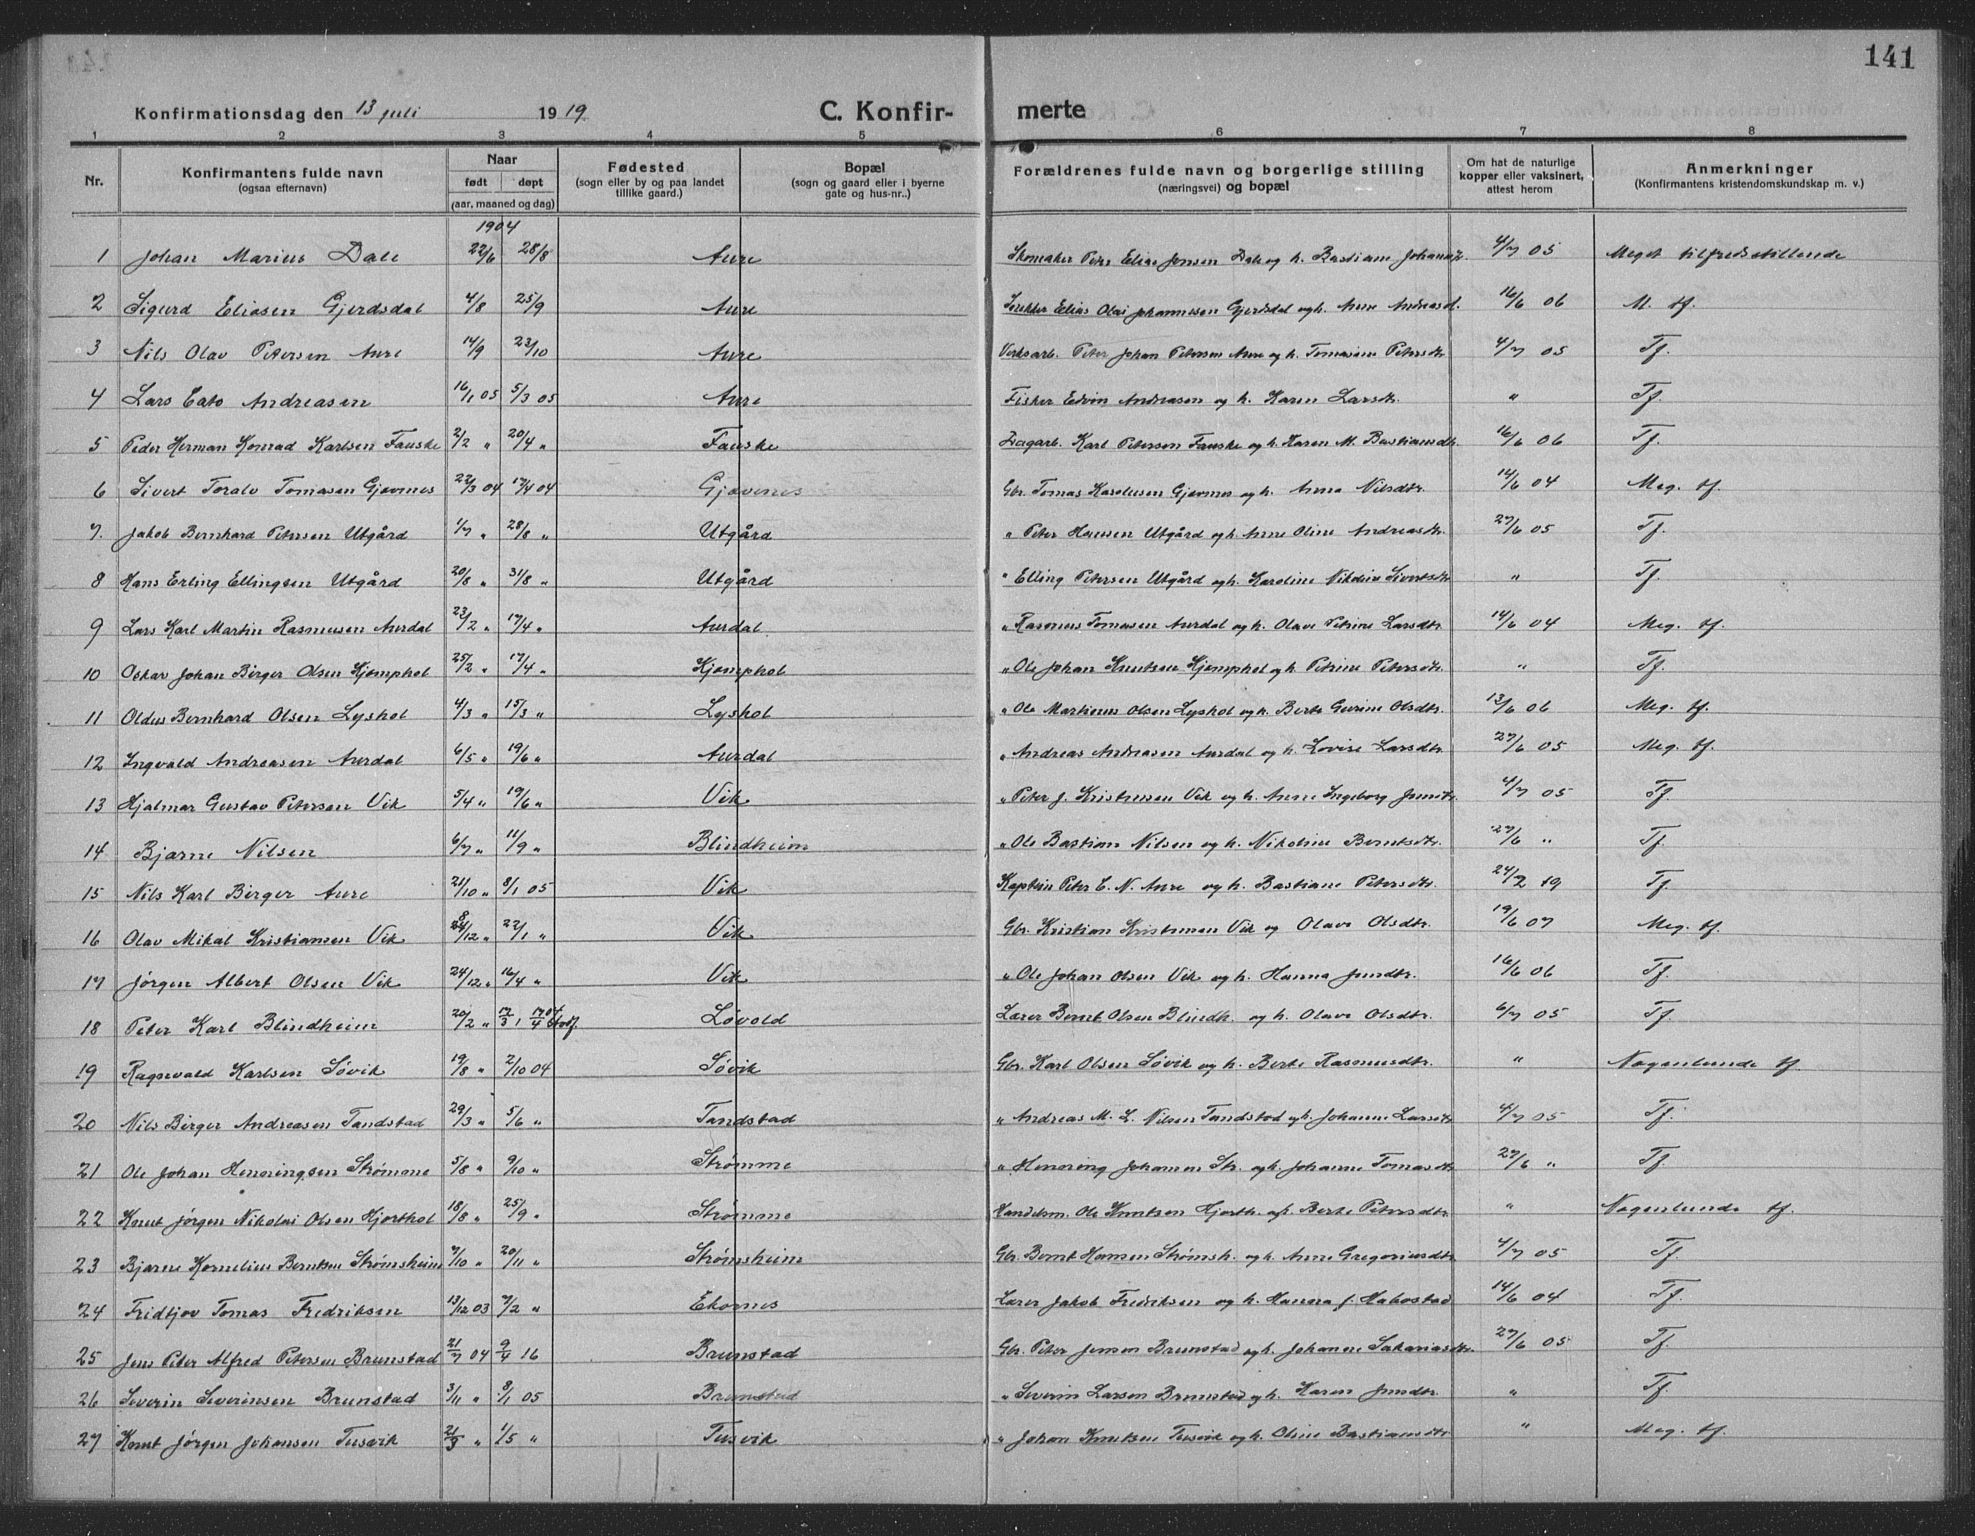 141
Konfirmationsdag den 13 juli 1919. C. Konfir- merte
1 2 3 4 5 6 7 8
Nr. Konfirmantens fulde navn (ogsaa efternavn) Naar født døpt (aar, maaned og dag) Fødested (sogn eller by og paa landet tillike gaard.) Bopæl (sogn og gaard eller i byerne gate og hus-nr..) Forældrenes fulde navn og borgerlige stilling (næringsvei) og bopæl Om hat de naturlige kopper eller vaksinert, attest herom Anmerkninger (Konfirmantens kristendomskundskap m. v.)
1904
1 Johan Marius Dale 22/6 28/8 Aure Skomaker Peter Elias Jensen Dale og h. Bastiane 4/7 05 Meget tilfredsstillende
2 Sigurd Eliasen Gjerdsdal 4/8 25/9 Aure Elias Olai Johannessen Gjerdsdal og h. Anne Andreasd. 16/6 06 M. tf.
3 Nils Olav Petersen Aure 14/9 23/10 Aure Verksarb. Peter Johan Petersen Aure og h. Tomasine Petersdtr 4/7 05 Tf.
4 Lars Cato Andreasen 16/1 05 5/3 05 Aure Fisker Edvin Andreasen og h. Karen Larsdtr. " Tf.
5 Peder Herman Konrad Karlsen Fauske 2/2 " 20/4 " Fauske Dagarb. Karl Petersen Fauske og h. Karen M. Bastiansdtr. 16/6 06 Tf.
6 Sivert Toralv Tomasen Gjævnes 22/3 04 17/4 04 Gjævenes Gbr. Tomas Karolusen Gjævnes og h. Anna Nilsdtr. 14/6 04 Meg. tf.
7. Jakob Bernhard Petersen Utgård 1/7 " 28/8 " Utgård " Peter Hansen Utgård og h. Anne Oline Andreasdtr. 27/6 05 Tf.
8 Hans Erling Ellingsen Utgård 20/8 " 31/8 " Utgård " Elling Petersen Utgård og h. Karoline Nikoline Sivertsdtr " Tf.
9 Lars Karl Martin Rasmusen Aurdal 23/2 " 17/4 " Aurdal " Rasmus Tomasen Aurdal og h. Olave Petrine Larsdtr. 14/6 04 Meg. tf.
10 Oskar Johan Birger Olsen Kjemphol 25/2 " 17/4 " Kjemphol " Ole Johan Knutsen Kjemphol og h. Petrine Petersdtr. " Tf.
11 Oldus Bernhard Olsen Lyshol 4/3 " 15/3 " Lyshol " Ole Martinus Olsen Lyshol og h. Berte Gurine Olsdtr. 13/6 06 Meg. tf.
12 Ingvald Andreasen Aurdal 6/5 " 19/6 " Aurdal " Andreas Andreasen Aurdal og h. Lovise Larsdtr 27/6 05 Meg. tf.
13 Hjalmar Gustav Petersen Vik 5/4 " 19/6 " Vik " Peter J. Kristensen Vik og h. Anne Ingeborg Jensdtr. 4/7 05 Tf.
14 Bjarne Nilsen 6/7 " 11/9 " Blindheim " Ole Bastian Nilsen og h. Nikoline Berntsdtr. 27/6 " Tf.
15 Nils Karl Birger Aure 21/10 " 8/1 05 Vik Kaptein Peter C. N. Aure og h. Bastiane Petersdtr. 24/2 19 Tf.
16 Olav Mikal Kristiansen Vik 8/12 " 22/1 " Vik Gbr. Kristian Kristensen Vik og Olave Olsdtr. 19/6 07 Meg. tf.
17 Jørgen Albert Olsen Vik 24/12 " 16/4 " Vik " Ole Johan Olsen Vik og h. Hanna Jensdtr. 16/6 06 Tf.
18 Peter Karl Blindheim 20/2 " 17/3, 17/4 04 stadf. Løvold Lærer Bernt Olsen Blindh. og h. Olave Olsdtr. 6/7 05 Tf.
19 Ragnvald Karlsen Søvik 19/8 " 2/10 04 Søvik Gbr. Karl Olsen Søvik og h. Berte Rasmusdtr. " Nogenlunde tf.
20 Nils Birger Andreasen Tandstad 29/3 " 5/6 " Tandstad " Andreas M. L. Nilsen Tandstad og h. Johanne Larsdtr 4/7 05 Tf.
21 Ole Johan Henningsen Strømme 5/8 " 9/10 " Strømme " Henning Johansen Str. og h. Johanne Tomasdtr 27/6 " Tf.
22 Knut Jørgen Nikolai Olsen Hjorthol 18/8 " 25/9 " Strømme Handelsm. Ole Knutsen Hjorth. og h. Berte Petersdtr " Nogenlunde tf.
23 Bjarne Kornelius Berntsen Strømsheim 7/10 " 20/11 " Strømsheim Gbr. Bernt Hansen Strømsh. og h. Anne Gregoriusdtr. 4/7 05 Tf.
24 Fridtjov Tomas Fredriksen 13/12 03 7/2 " Ekornes Lærer Jakob Fredriksen og h. Hanna J. Habostad 14/6 04 Tf.
25 Jens Peter Alfred Petersen Brunstad 21/7 04 9/4 16 Brunstad Gbr. Peter Jensen Brunstad og h. Johanne Sakariasdtr. 27/6 05 Tf.
26 Severin Severinsen Brunstad 3/11 " 8/1 05 Brunstad " Severin Larsen Brunstad og h. Karen Jensdtr. " Tf.
27 Knut Jørgen Johansen Tusvik 21/3 " 1/5 " Tusvik " Johan Knutsen Tusvik og h. Oline Bastiansdtr " Meg. tf.